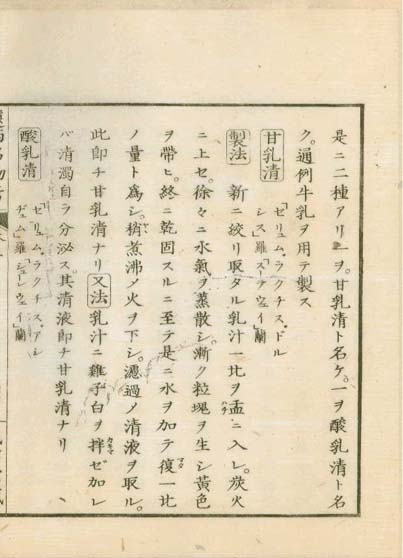 是ニ二種アリ一ヲ。甘乳清ト名ケ。一ヲ酸乳清ト名
ク。通例牛乳ヲ用テ製ス
甘乳清 「ゼリュム。ラクチス。ドル
シース」羅「スーテウェイ」蘭
製法 新ニ絞リ取タル乳汁一比ヲ盂ニ入レ。炭火
ニ上セ。徐々ニ水氣ヲ蒸散シ。漸ク粒塊ヲ生シ黄色
ヲ帶ヒ。終ニ乾固スルニ至テ是ニ水ヲ加テ復一比
ノ量ト爲シ。稍煮沸ノ火ヲ下シ。濾過ノ清液ヲ取ル。
此即チ甘乳清ナリ 又法 乳汁ニ雞子白ヲ拌ゼ加レ
バ清濁自ラ分泌ス。其清液即チ甘乳清ナリ
酸乳清 「ゼリュム。ラクチス。アシ
ヂュム」羅「シューレウェイ」蘭